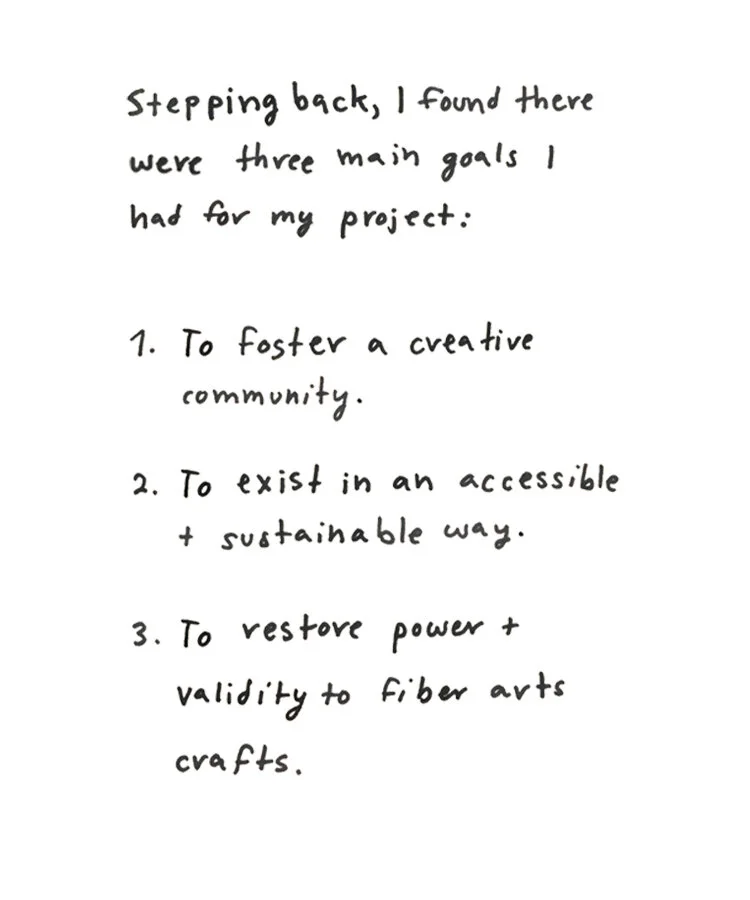 Stepping back, I found there
were three main goals I
had for my project:
1. To foster a creative
community.
2. To exist in an accessible
+ sustainable way.
3. To restore power +
validity to fiber arts
crafts.